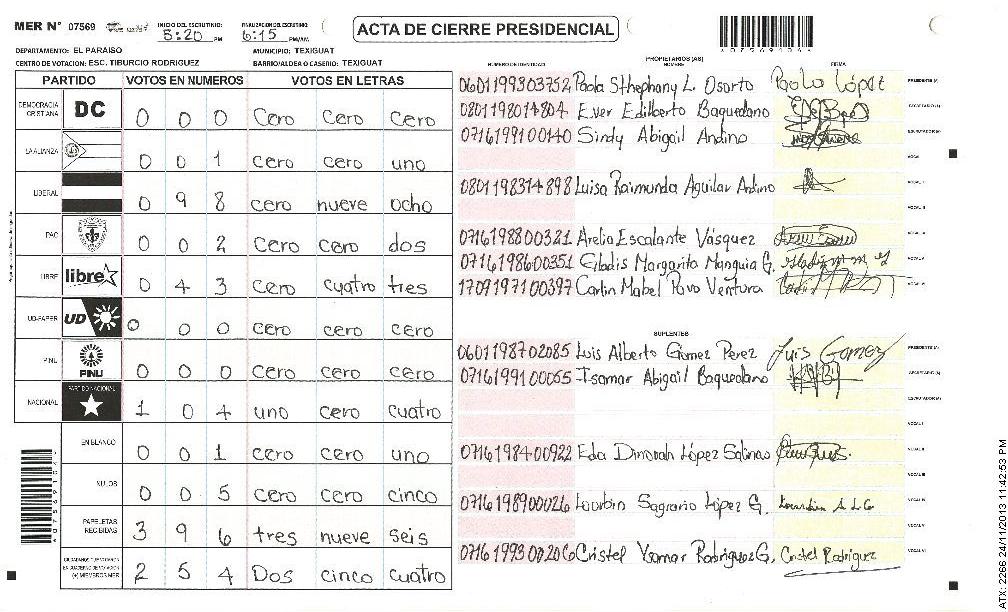 MER N° 07569
INICIO DEL ESCRUTINIO: 5:20 PM
FINALIZACION DEL ESCRUTINIO: 6:15 PM/AM.
ACTA DE CIERRE PRESIDENCIAL
DEPARTAMENTO: EL PARAISO
MUNICIPIO: TEXIGUAT
CENTRO DE VOTACION: ESC. TIBURCIO RODRIGUEZ
BARRIO/ALDEA O CASERIO: TEXIGUAT
PARTIDO VOTOS EN NUMEROS VOTOS EN LETRAS
DEMOCRACIA CRISTIANA DC 0 0 0 Cero Cero Cero
LA ALIANZA 0 0 1 cero cero uno
LIBERAL 0 9 8 cero nueve ocho
PAC 0 0 2 Cero Cero dos
LIBRE libre 0 4 3 Cero cuatro tres
UD-FAPER UD 0 0 0 cero cero cero
PINU PINU 0 0 0 cero cero cero
NACIONAL PARTIDO NACIONAL 1 0 4 uno cero cuatro
EN BLANCO 0 0 1 cero cero uno
NULOS 0 0 5 cero cero cinco
PAPELETAS RECIBIDAS 3 9 6 tres nueve seis
2 5 4 Dos cinco cuatro
NUMERO DE IDENTIDAD PROPIETARIOS (AS) NOMBRE FIRMA
0601199803752 Paola Sthephany L. Osorto Paola López PRESIDENTE (A)
0801198014804 Ever Edilberto Baquedano SECRETARIO (A)
0716199100140 Sindy Abigail Andino ESCRUTADOR (A)
VOCAL I
0801198314898 Luisa Raimunda Aguilar Andino
0716198800321 Arelia Escalante Vásquez
0716198600351 Gladis Margarita Munguia G.
1709197100397 Carlin Mabel Pavo Ventura
SUPLENTES
0601198702085 Luis Alberto Gomez Perez Luis Gomez PRESIDENTE (A)
0716199100055 Isamar Abigail Baquedano SECRETARIO (A)
ESCRUTADOR (A)
VOCAL I
0716198400922 Eda Dinorah López Salinas
0716198900026 Lourbin Sagrario López G.
0716199300206 Cristel Ysamar Rodriguez G. Cristel Rodriguez
ATX: 2266 24/11/2013 11:42:53 PM